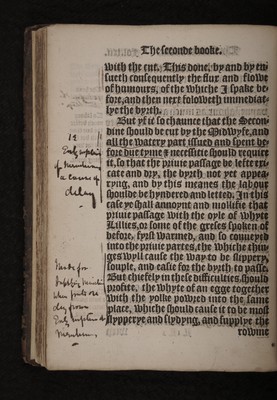 The seconde booke.
with the cut. This done, by and by en-
sueth consequently the flux and flowe
of humours, of the whiche I spake be-
fore, and then next foloweth immediat-
lye the byrth.
But yf it so chaunce that the Secon-
dine should be cut by the Midwyfe, and
all the watery part issued and spent be-
fore due tyme & necessitie should require
it, so that the priuie passage be lefte ex-
icate and dry, the byrth not yet appea-
ryng, and by this meanes the labour
shoulde be hyndered and letted. In this
case ye shall annoynt and mollifie that
priuie passage with the oyle of whyte
Lillies, or some of the greses spoken of
before, fyrst warmed, and so conueyed
into the priuie partes, the whiche thin-
ges wyll cause the way to be slippery,
souple, and easie for the byrth to passe.
But chiefely in these difficulties should
profite, the whyte of an egge together
with the yolke powred into the same
place, whiche should cause it to be most
slypperye and slydyng, and supplye the
rowme
12
Early rupture
of Membranes
a cause of
delay
when
Early rupture of
Membranes